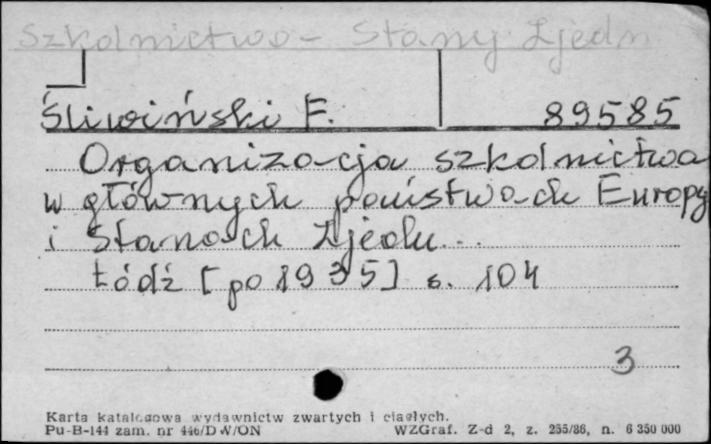 Szkolnictwo - Stany Zjedn
Śliwiński F. 89585
Organizacja szkolnictwa
w głównych państwach Europy
i Stanach Zjedn...
Łódź [po 1935] s. 104
3
Karta katalogowa wydawnictw zwartych i ciągłych.
Pu-B-144 zam. nr 446/DW/ON WZGraf. Z-d 2, z. 255/86, n. 6 350 000